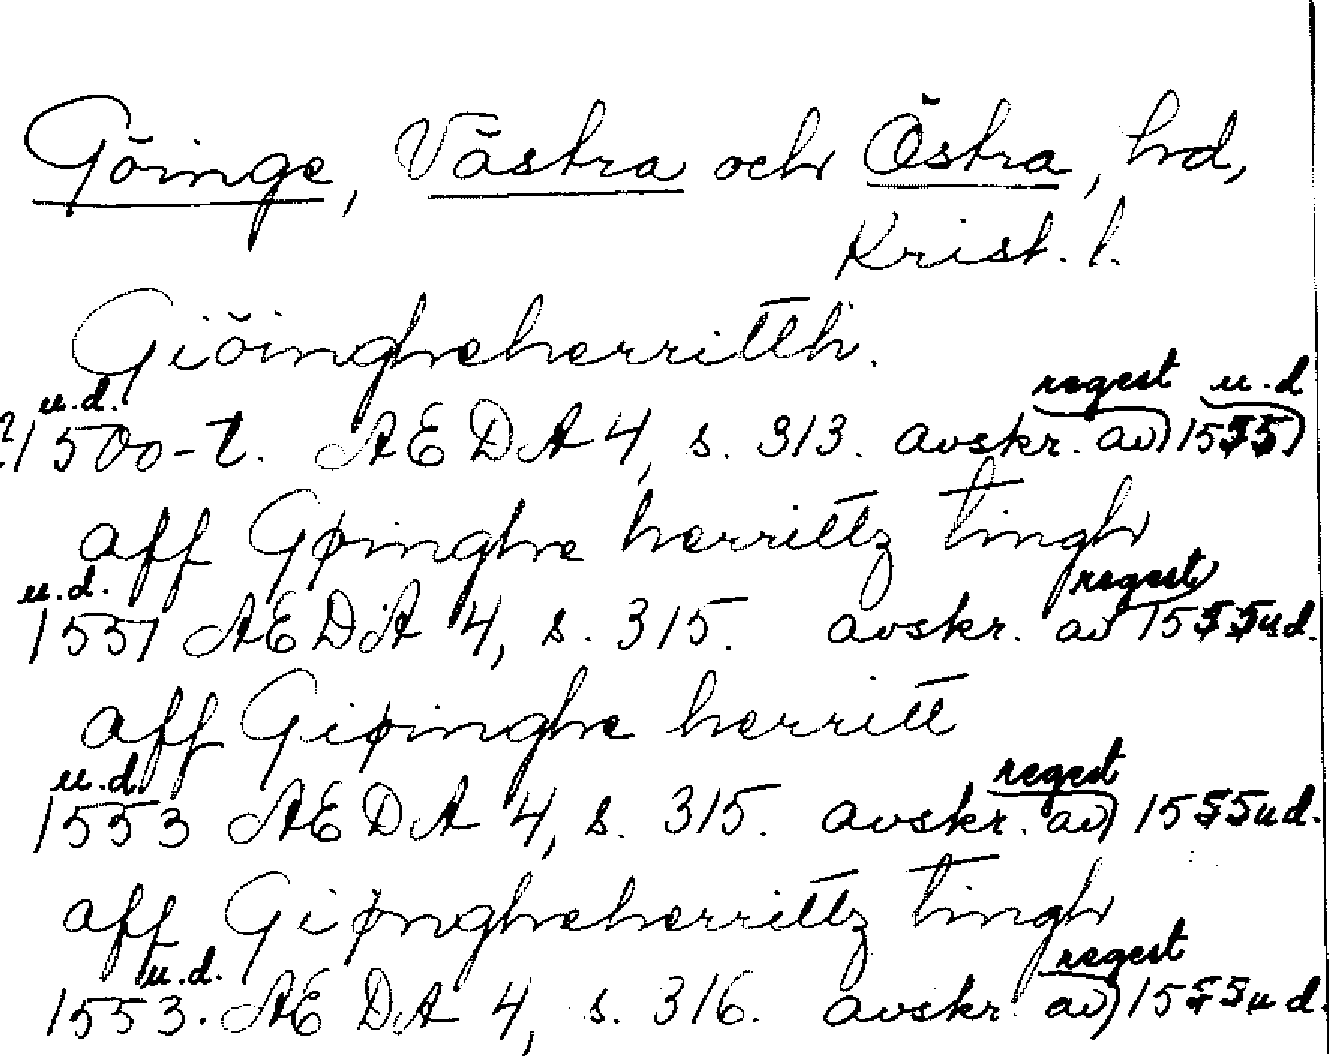 Göinge, Västra och Östra, hd,
Krist. l.
Giöingheherritth.
u.d. regest u.d
1500-t. AEDA 4, s. 313. avskr. av) 1555)
aff Gøinghe herrittz tingh
u.d. regest
1551 AEDA 4, s. 315. avskr. av 1555 u d.
aff Giøinghe herritt
u.d. regest
1553 AEDA 4, s. 315. avskr. av) 1555 u d.
aff Giøngheherrittz tingh
u.d. regest
1553. AEDA 4, s. 316. avskr. av) 1555 u d.